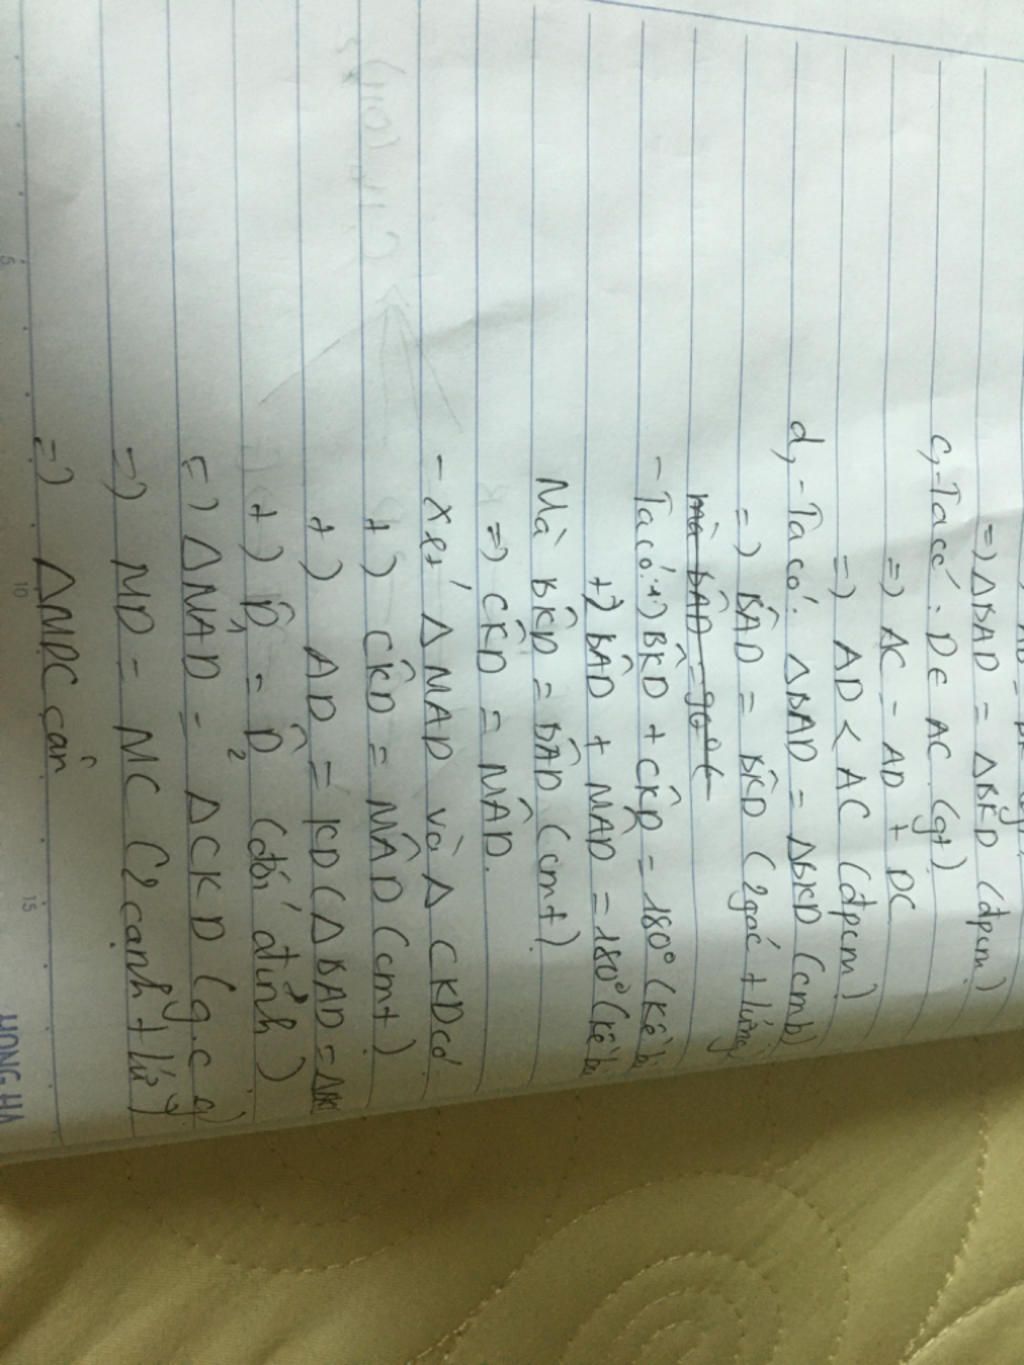 =) ΔBAD = ΔBKD (đpcm)
c, - Ta có: D ∈ AC (gt)
=) AC = AD + DC
=) AD < AC (đpcm)
d, - Ta có: ΔBAD = ΔBKD (cmb)
=) BÂD = BK̂D (2 góc tương
mà BÂD = 90°
- Ta có: +) BK̂D + CK̂D = 180° (kề bù
+) BÂD + MÂD = 180° (kề bù
Mà BK̂D = BÂD (cmt)
=) CK̂D = MÂD.
- Xét ΔMAD và ΔCKD có
+) CK̂D = MÂD (cmt)
+) AD = KD (ΔBAD =
+) D̂1 = D̂2 (đối đỉnh)
=) ΔMAD = ΔCKD (g.c.g)
=) MD = MC (2 cạnh tứ)
=) ΔMDC cân
5
10
15
HONG HA